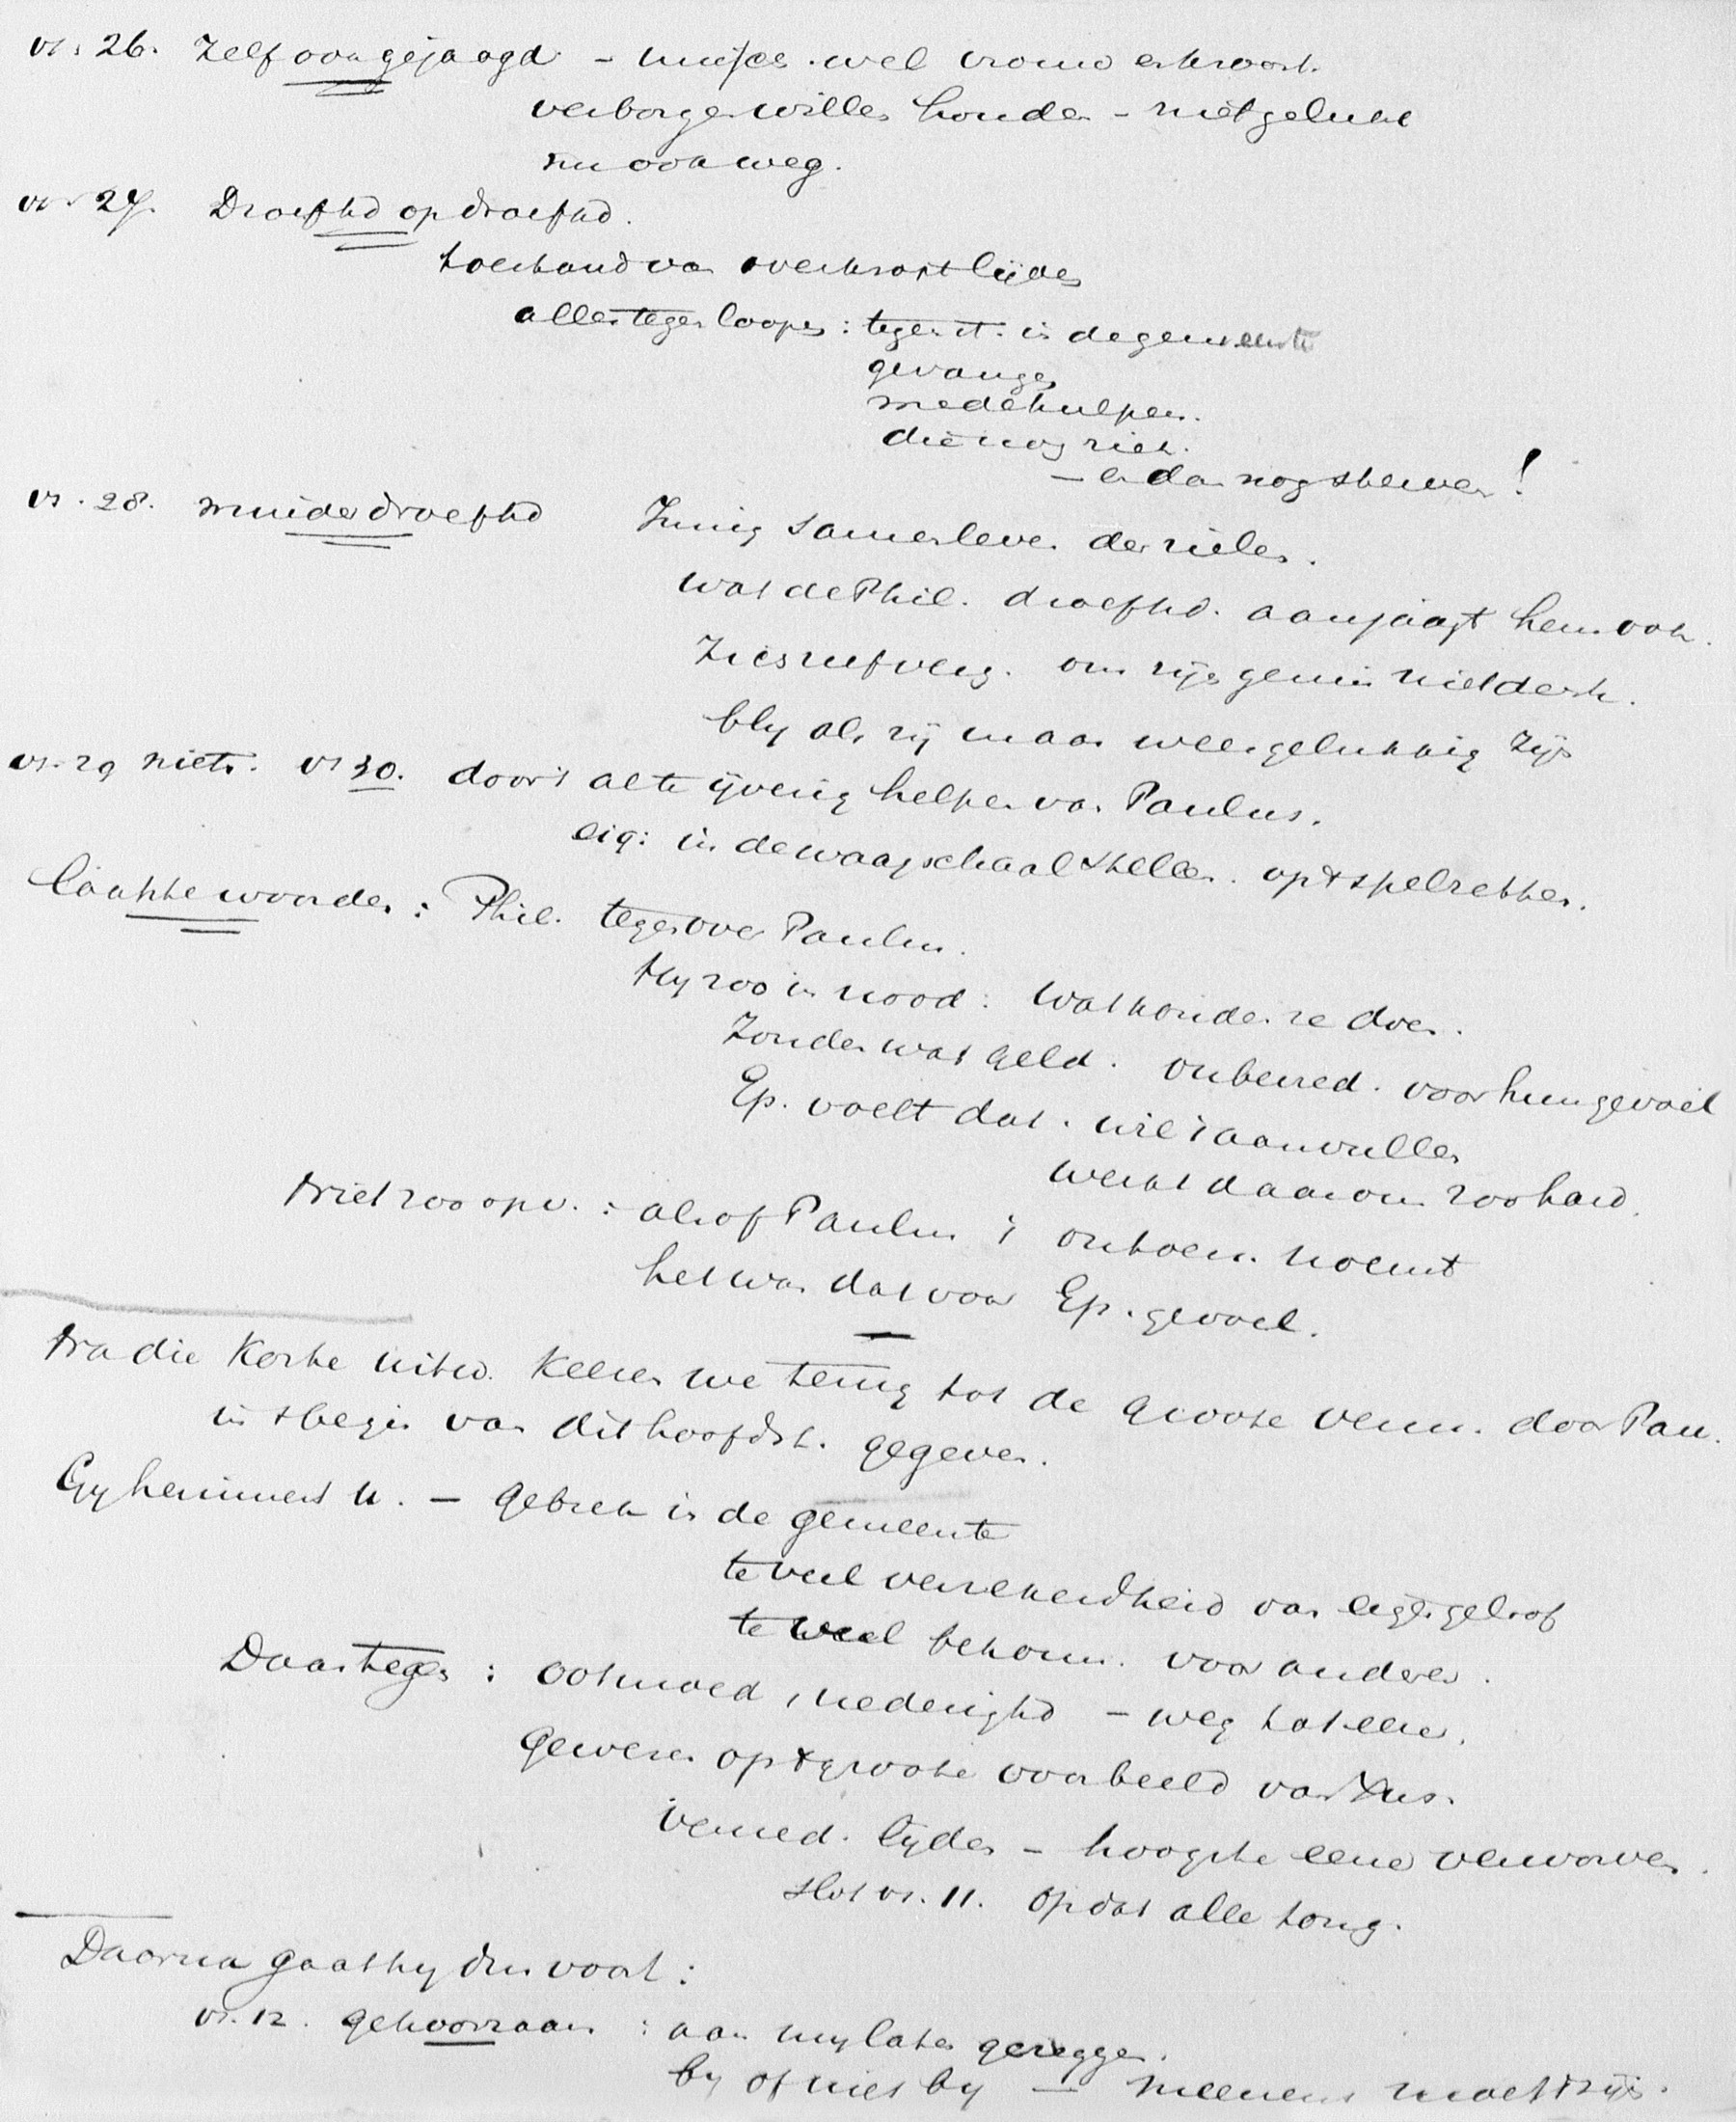 vs. 26. Zelf ook gejaagd - wel
verborgen willen houden - niet gelukt
nu ook weg.
vs. 27. Droefhd op droefhd.
toestand van overkropt lijden
alles tegenloopen: tegenst. in de gemeente
gevangen
medehelpers.
die nog ziek.
- en dan nog sterven!
vs. 28. minder droefhd Innig samenleven der zielen.
wat de Phil. droefhd. aanjaagt hem ook.
om zijn gemis niet denk.
bly als zij maar weer gelukkig zijn
vs. 29 niets. vs 30. door 't al te ijverig helpen van Paulus.
eig: in de waagschaal stellen. op 't spel zetten.
Laatste woorden: Phil. tegenover Paulus.
Hy zoo in nood: Wat konden ze doen.
Zonden wat geld. onbevred. voor hun gevoel
Ep. voelt dat. wil 't aanvullen
werkt daarom zoo hard.
Niet zoo opv.: alsof Paulus 't ontoer. noemt
het was dat voor Ep. gevoel.
Na die korte uitw. keeren we terug tot de groote verm. door Pau.
in 't begin van dit hoofdst. gegeven.
Gy herinnert u. - gebrek in de gemeente
te veel verzekerdheid van eigen geloof
te veel bekom. voor anderen.
Daartegen: ootmoed, nederighd - weg tot eere.
Gewezen op 't groote voorbeeld van Xus.
verned. lyden - hoogste eere verworven.
slot vs. 11. opdat alle tong.
Daarna gaat hy dus voort:
vs. 12. gehoorzaam: aan my laten gezeggen.
by of niet by - meenens moet 't zijn.